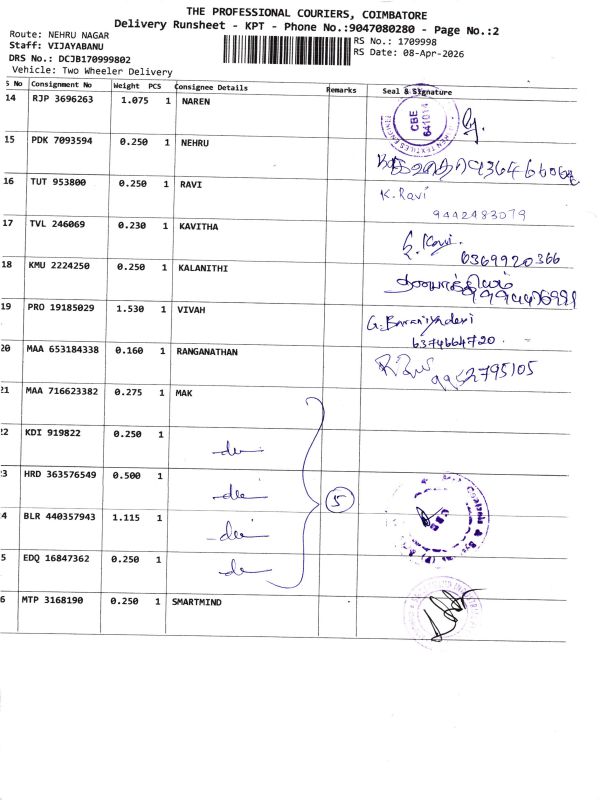 THE PROFESSIONAL COURIERS, COIMBATORE
Delivery Runsheet - KPT - Phone No.:9047080280 - Page No.:2
Route: NEHRU NAGAR
Staff: VIJAYABANU
DRS No.: DCJB170999802
Vehicle: Two Wheeler Delivery
RS No.: 1709998
RS Date: 08-Apr-2026
S No Consignment No Weight PCS Consignee Details Remarks Seal & Signature
14 RJP 3696263 1.075 1 NAREN CBE 641014
15 PDK 7093594 0.250 1 NEHRU
16 TUT 953800 0.250 1 RAVI K. Ravi
9442483079
17 TVL 246069 0.230 1 KAVITHA
6369920366
18 KMU 2224250 0.250 1 KALANITHI
19 PRO 19185029 1.530 1 VIVAH G. Baraniyadevi
6374664720.
20 MAA 653184338 0.160 1 RANGANATHAN
9952795105
21 MAA 716623382 0.275 1 MAK
22 KDI 919822 0.250 1
23 HRD 363576549 0.500 1 5
4 BLR 440357943 1.115 1
5 EDQ 16847362 0.250 1
6 MTP 3168190 0.250 1 SMARTMIND